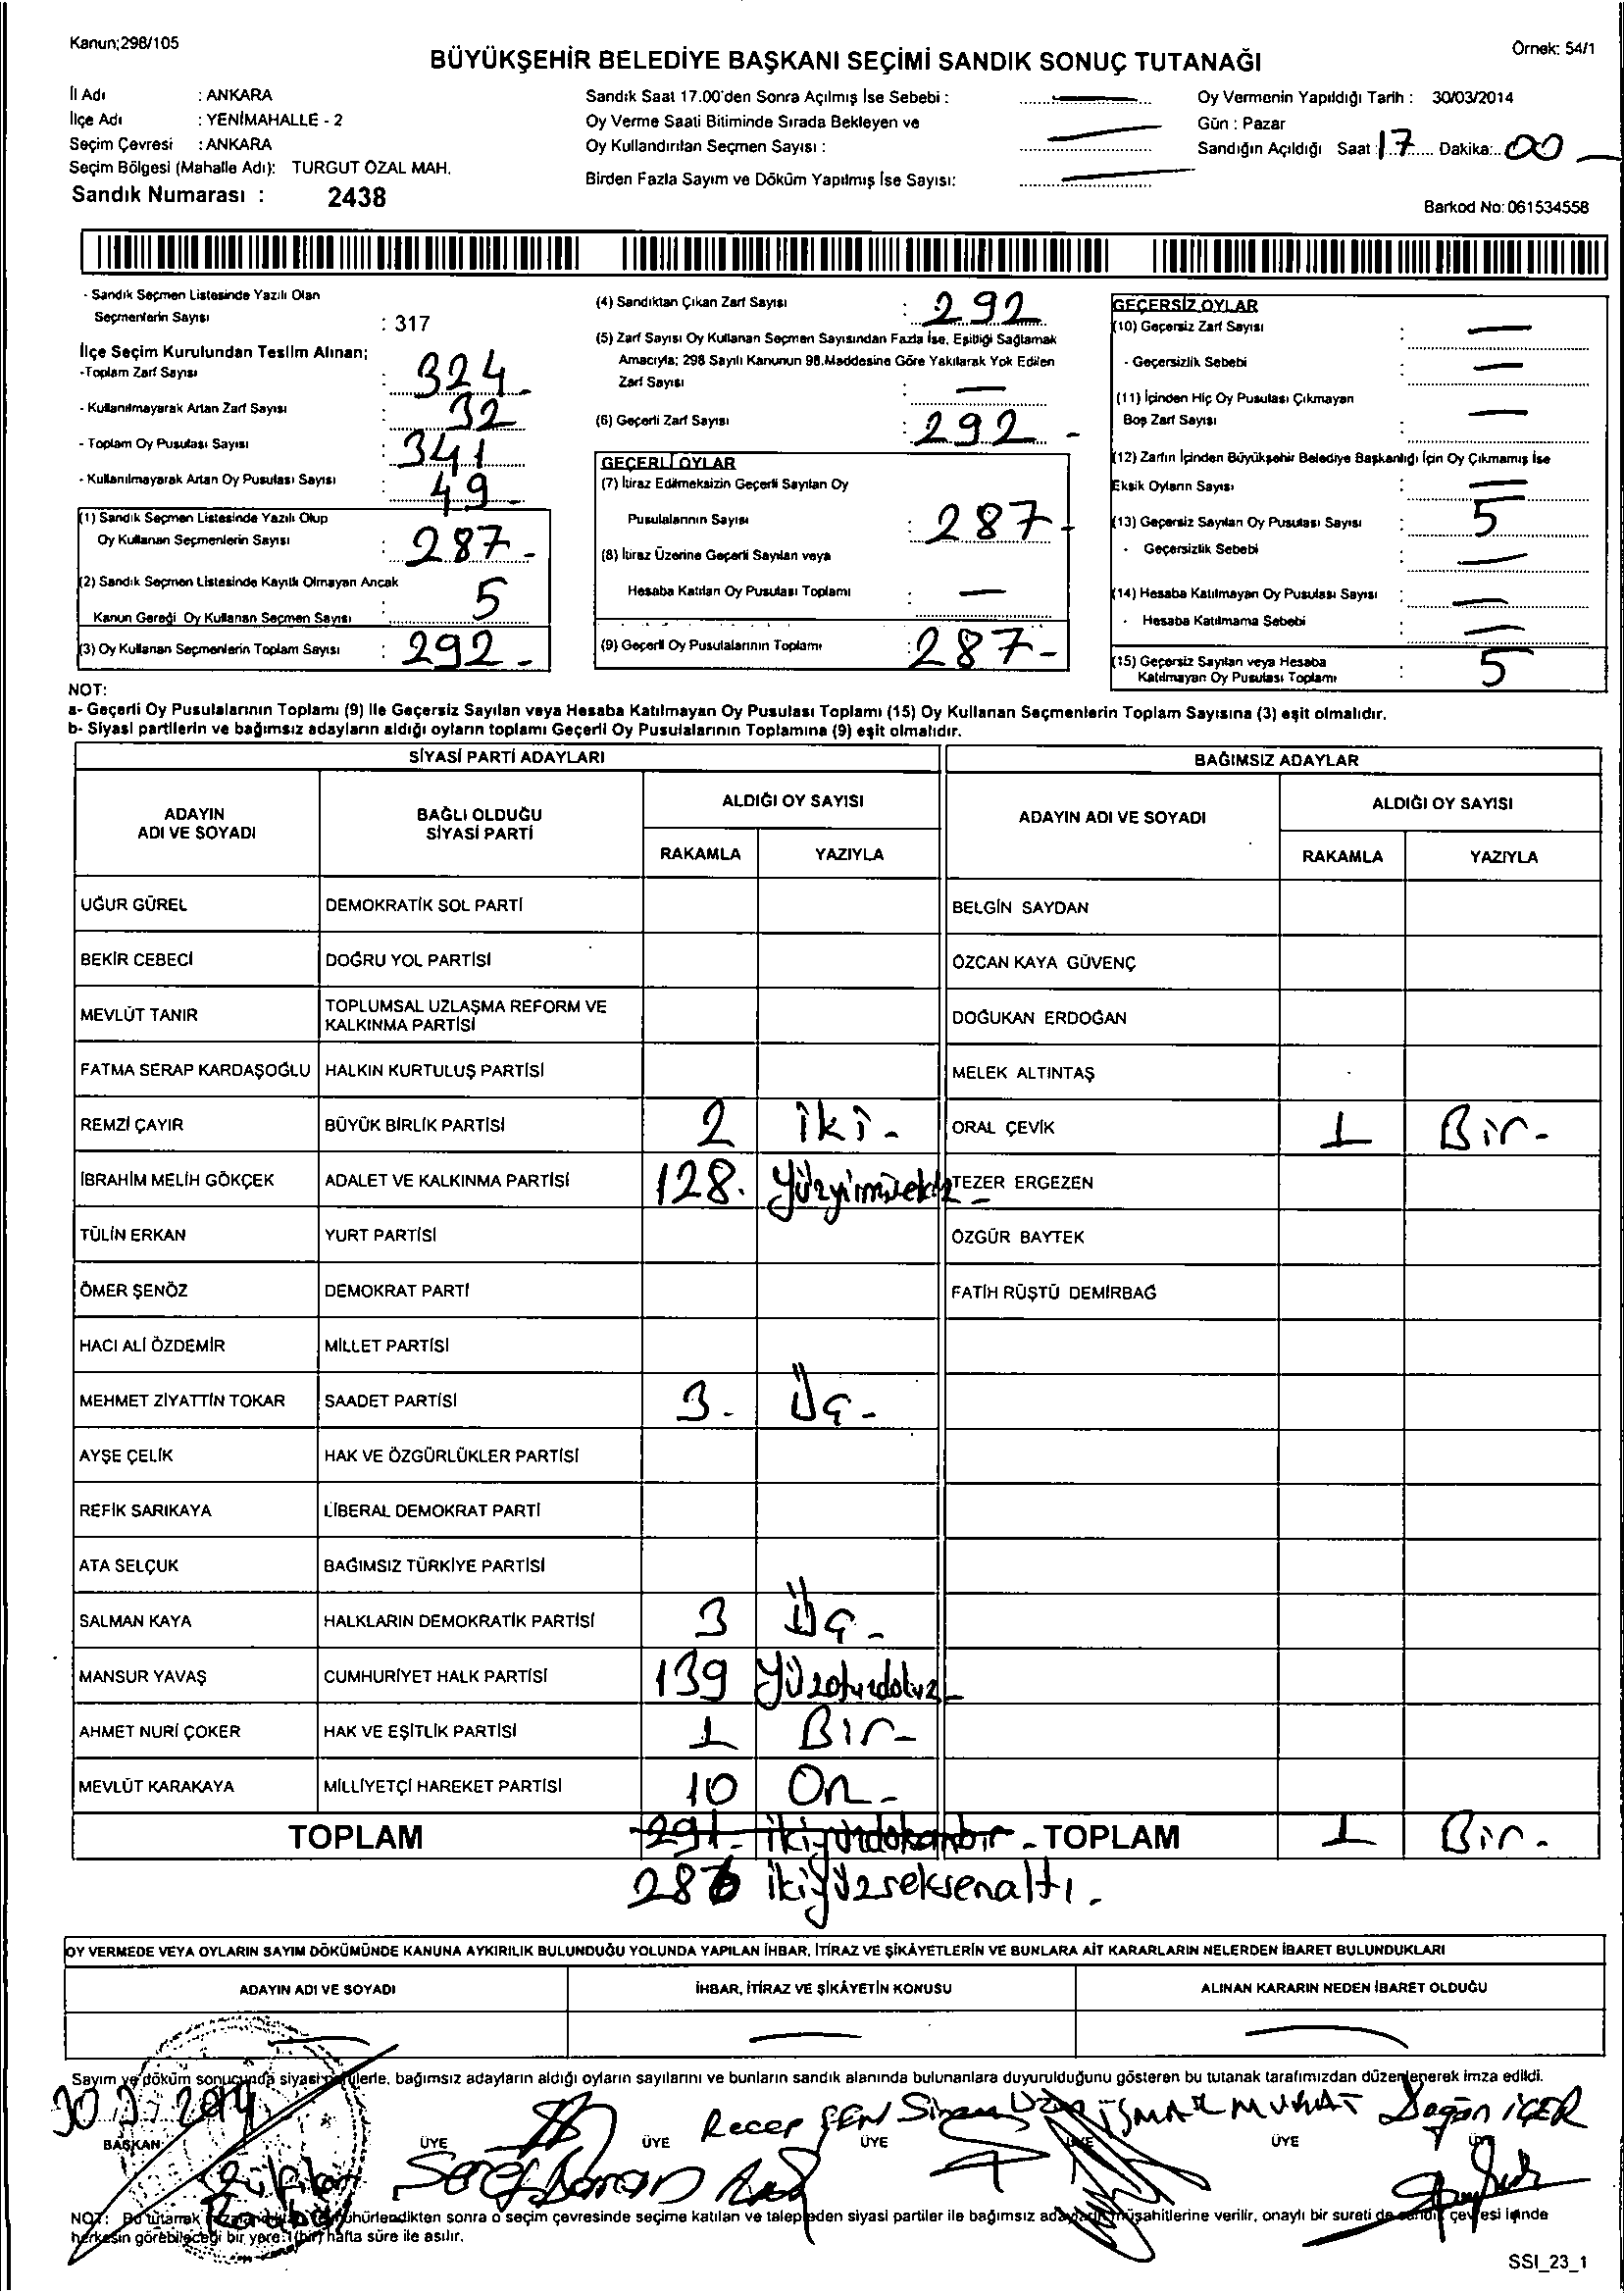 Kanun;298/105
Örnek: 54/1
BÜYÜKŞEHİR BELEDİYE BAŞKANI SEÇİMİ SANDIK SONUÇ TUTANAĞI
İl Adı : ANKARA
İlçe Adı : YENİMAHALLE - 2
Seçim Çevresi : ANKARA
Seçim Bölgesi (Mahalle Adı): TURGUT ÖZAL MAH.
Sandık Numarası : 2438
Sandık Saat 17.00'den Sonra Açılmış İse Sebebi :
Oy Verme Saati Bitiminde Sırada Bekleyen ve
Oy Kullandırılan Seçmen Sayısı :
Birden Fazla Sayım ve Döküm Yapılmış İse Sayısı:
Oy Vermenin Yapıldığı Tarih : 30/03/2014
Gün : Pazar
Sandığın Açıldığı Saat : 17 Dakika: 00
Barkod No: 061534558
- Sandık Seçmen Listesinde Yazılı Olan
Seçmenlerin Sayısı : 317
İlçe Seçim Kurulundan Teslim Alınan;
-Toplam Zarf Sayısı : 324
- Kullanılmayarak Artan Zarf Sayısı : 32
- Toplam Oy Pusulası Sayısı : 341
- Kullanılmayarak Artan Oy Pusulası Sayısı : 49-
(1) Sandık Seçmen Listesinde Yazılı Olup
Oy Kullanan Seçmenlerin Sayısı : 287-
(2) Sandık Seçmen Listesinde Kayıtlı Olmayan Ancak
Kanun Gereği Oy Kullanan Seçmen Sayısı : 5
(3) Oy Kullanan Seçmenlerin Toplam Sayısı : 292-
(4) Sandıktan Çıkan Zarf Sayısı : 292
(5) Zarf Sayısı Oy Kullanan Seçmen Sayısından Fazla İse, Eşitliği Sağlamak
Amacıyla; 298 Sayılı Kanunun 98.Maddesine Göre Yakılarak Yok Edilen
Zarf Sayısı : —
(6) Geçerli Zarf Sayısı : 292-
GEÇERLİ OYLAR
(7) İtiraz Edilmeksizin Geçerli Sayılan Oy
Pusulalarının Sayısı : 287-
(8) İtiraz Üzerine Geçerli Sayılan veya
Hesaba Katılan Oy Pusulası Toplamı : —
(9) Geçerli Oy Pusulalarının Toplamı : 287-
GEÇERSİZ OYLAR
(10) Geçersiz Zarf Sayısı : —
- Geçersizlik Sebebi : —
(11) İçinden Hiç Oy Pusulası Çıkmayan
Boş Zarf Sayısı : —
(12) Zarfın İçinden Büyükşehir Belediye Başkanlığı İçin Oy Çıkmamış İse
Eksik Oyların Sayısı : —
(13) Geçersiz Sayılan Oy Pusulası Sayısı : 5
- Geçersizlik Sebebi : —
(14) Hesaba Katılmayan Oy Pusulası Sayısı : —
- Hesaba Katılmama Sebebi : —
(15) Geçersiz Sayılan veya Hesaba
Katılmayan Oy Pusulası Toplamı : 5
NOT:
a- Geçerli Oy Pusulalarının Toplamı (9) İle Geçersiz Sayılan veya Hesaba Katılmayan Oy Pusulası Toplamı (15) Oy Kullanan Seçmenlerin Toplam Sayısına (3) eşit olmalıdır.
b- Siyasi partilerin ve bağımsız adayların aldığı oyların toplamı Geçerli Oy Pusulalarının Toplamına (9) eşit olmalıdır.
SİYASİ PARTİ ADAYLARI
ADAYIN ADI VE SOYADI
BAĞLI OLDUĞU SİYASİ PARTİ
ALDIĞI OY SAYISI
RAKAMLA YAZIYLA
UĞUR GÜREL DEMOKRATİK SOL PARTİ
BEKİR CEBECİ DOĞRU YOL PARTİSİ
MEVLÜT TANIR TOPLUMSAL UZLAŞMA REFORM VE KALKINMA PARTİSİ
FATMA SERAP KARDAŞOĞLU HALKIN KURTULUŞ PARTİSİ
REMZİ ÇAYIR BÜYÜK BİRLİK PARTİSİ 2 iki-
İBRAHİM MELİH GÖKÇEK ADALET VE KALKINMA PARTİSİ 128. Yüzyirmisekiz-
TÜLİN ERKAN YURT PARTİSİ
ÖMER ŞENÖZ DEMOKRAT PARTİ
HACI ALİ ÖZDEMİR MİLLET PARTİSİ
MEHMET ZİYATTİN TOKAR SAADET PARTİSİ 3- Üç-
AYŞE ÇELİK HAK VE ÖZGÜRLÜKLER PARTİSİ
REFİK SARIKAYA LİBERAL DEMOKRAT PARTİ
ATA SELÇUK BAĞIMSIZ TÜRKİYE PARTİSİ
SALMAN KAYA HALKLARIN DEMOKRATİK PARTİSİ 3 Üç-
MANSUR YAVAŞ CUMHURİYET HALK PARTİSİ 139 Yüzotuzdokuz-
AHMET NURİ ÇOKER HAK VE EŞİTLİK PARTİSİ 1 Bir-
MEVLÜT KARAKAYA MİLLİYETÇİ HAREKET PARTİSİ 10 On-
TOPLAM 291- ikiyüzdoksanbir-
286 ikiyüzseksenaltı.
BAĞIMSIZ ADAYLAR
ADAYIN ADI VE SOYADI
ALDIĞI OY SAYISI
RAKAMLA YAZIYLA
BELGİN SAYDAN
ÖZCAN KAYA GÜVENÇ
DOĞUKAN ERDOĞAN
MELEK ALTINTAŞ
ORAL ÇEVİK 1 Bir-
TEZER ERGEZEN
ÖZGÜR BAYTEK
FATİH RÜŞTÜ DEMİRBAĞ
TOPLAM 1 Bir-
OY VERMEDE VEYA OYLARIN SAYIM DÖKÜMÜNDE KANUNA AYKIRILIK BULUNDUĞU YOLUNDA YAPILAN İHBAR, İTİRAZ VE ŞİKÂYETLERİN VE BUNLARA AİT KARARLARIN NELERDEN İBARET BULUNDUKLARI
ADAYIN ADI VE SOYADI
İHBAR, İTİRAZ VE ŞİKÂYETİN KONUSU
ALINAN KARARIN NEDEN İBARET OLDUĞU
Sayım ve döküm sonucunda siyasi partilerle, bağımsız adayların aldığı oyların sayılarını ve bunların sandık alanında bulunanlara duyurulduğunu gösteren bu tutanak tarafımızdan düzenlenerek imza edildi.
30.3.2014
Recep ŞEN Sinan İSMAİL MURAT Doğan İÇER
BAŞKAN ÜYE ÜYE ÜYE ÜYE ÜYE ÜYE
NOT: Bu tutanak mühürlendikten sonra o seçim çevresinde seçime katılan ve talep eden siyasi partiler ile bağımsız adayların müşahitlerine verilir, onaylı bir sureti de sandık çevresi içinde
herkesin görebileceği bir yere 1(bir) hafta süre ile asılır.
SSI_23_1